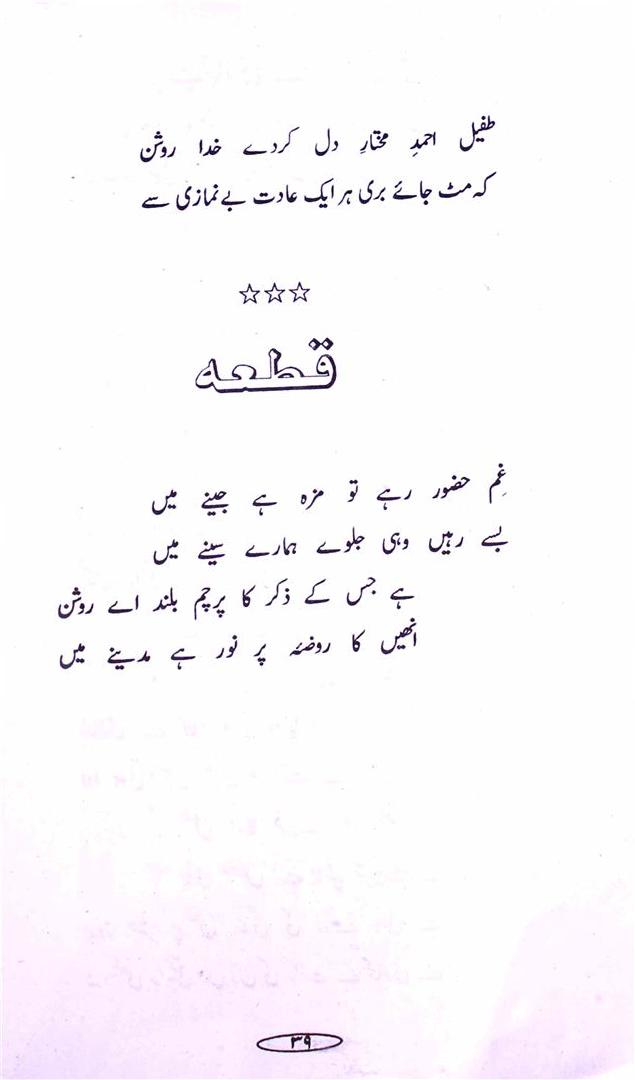 طفیل احمدِ مختارِ دل کردے خدا روشن
کہ مٹ جائے بری ہر ایک عادت بے نمازی سے
☆☆☆
قطعہ
غمِ حضور رہے تو مزہ ہے جینے میں
بسے رہیں وہی جلوے ہمارے سینے میں
ہے جس کے ذکر کا پرچم بلند اے روشن
انھیں کا روضۂ پر نور ہے مدینے میں
۳۹